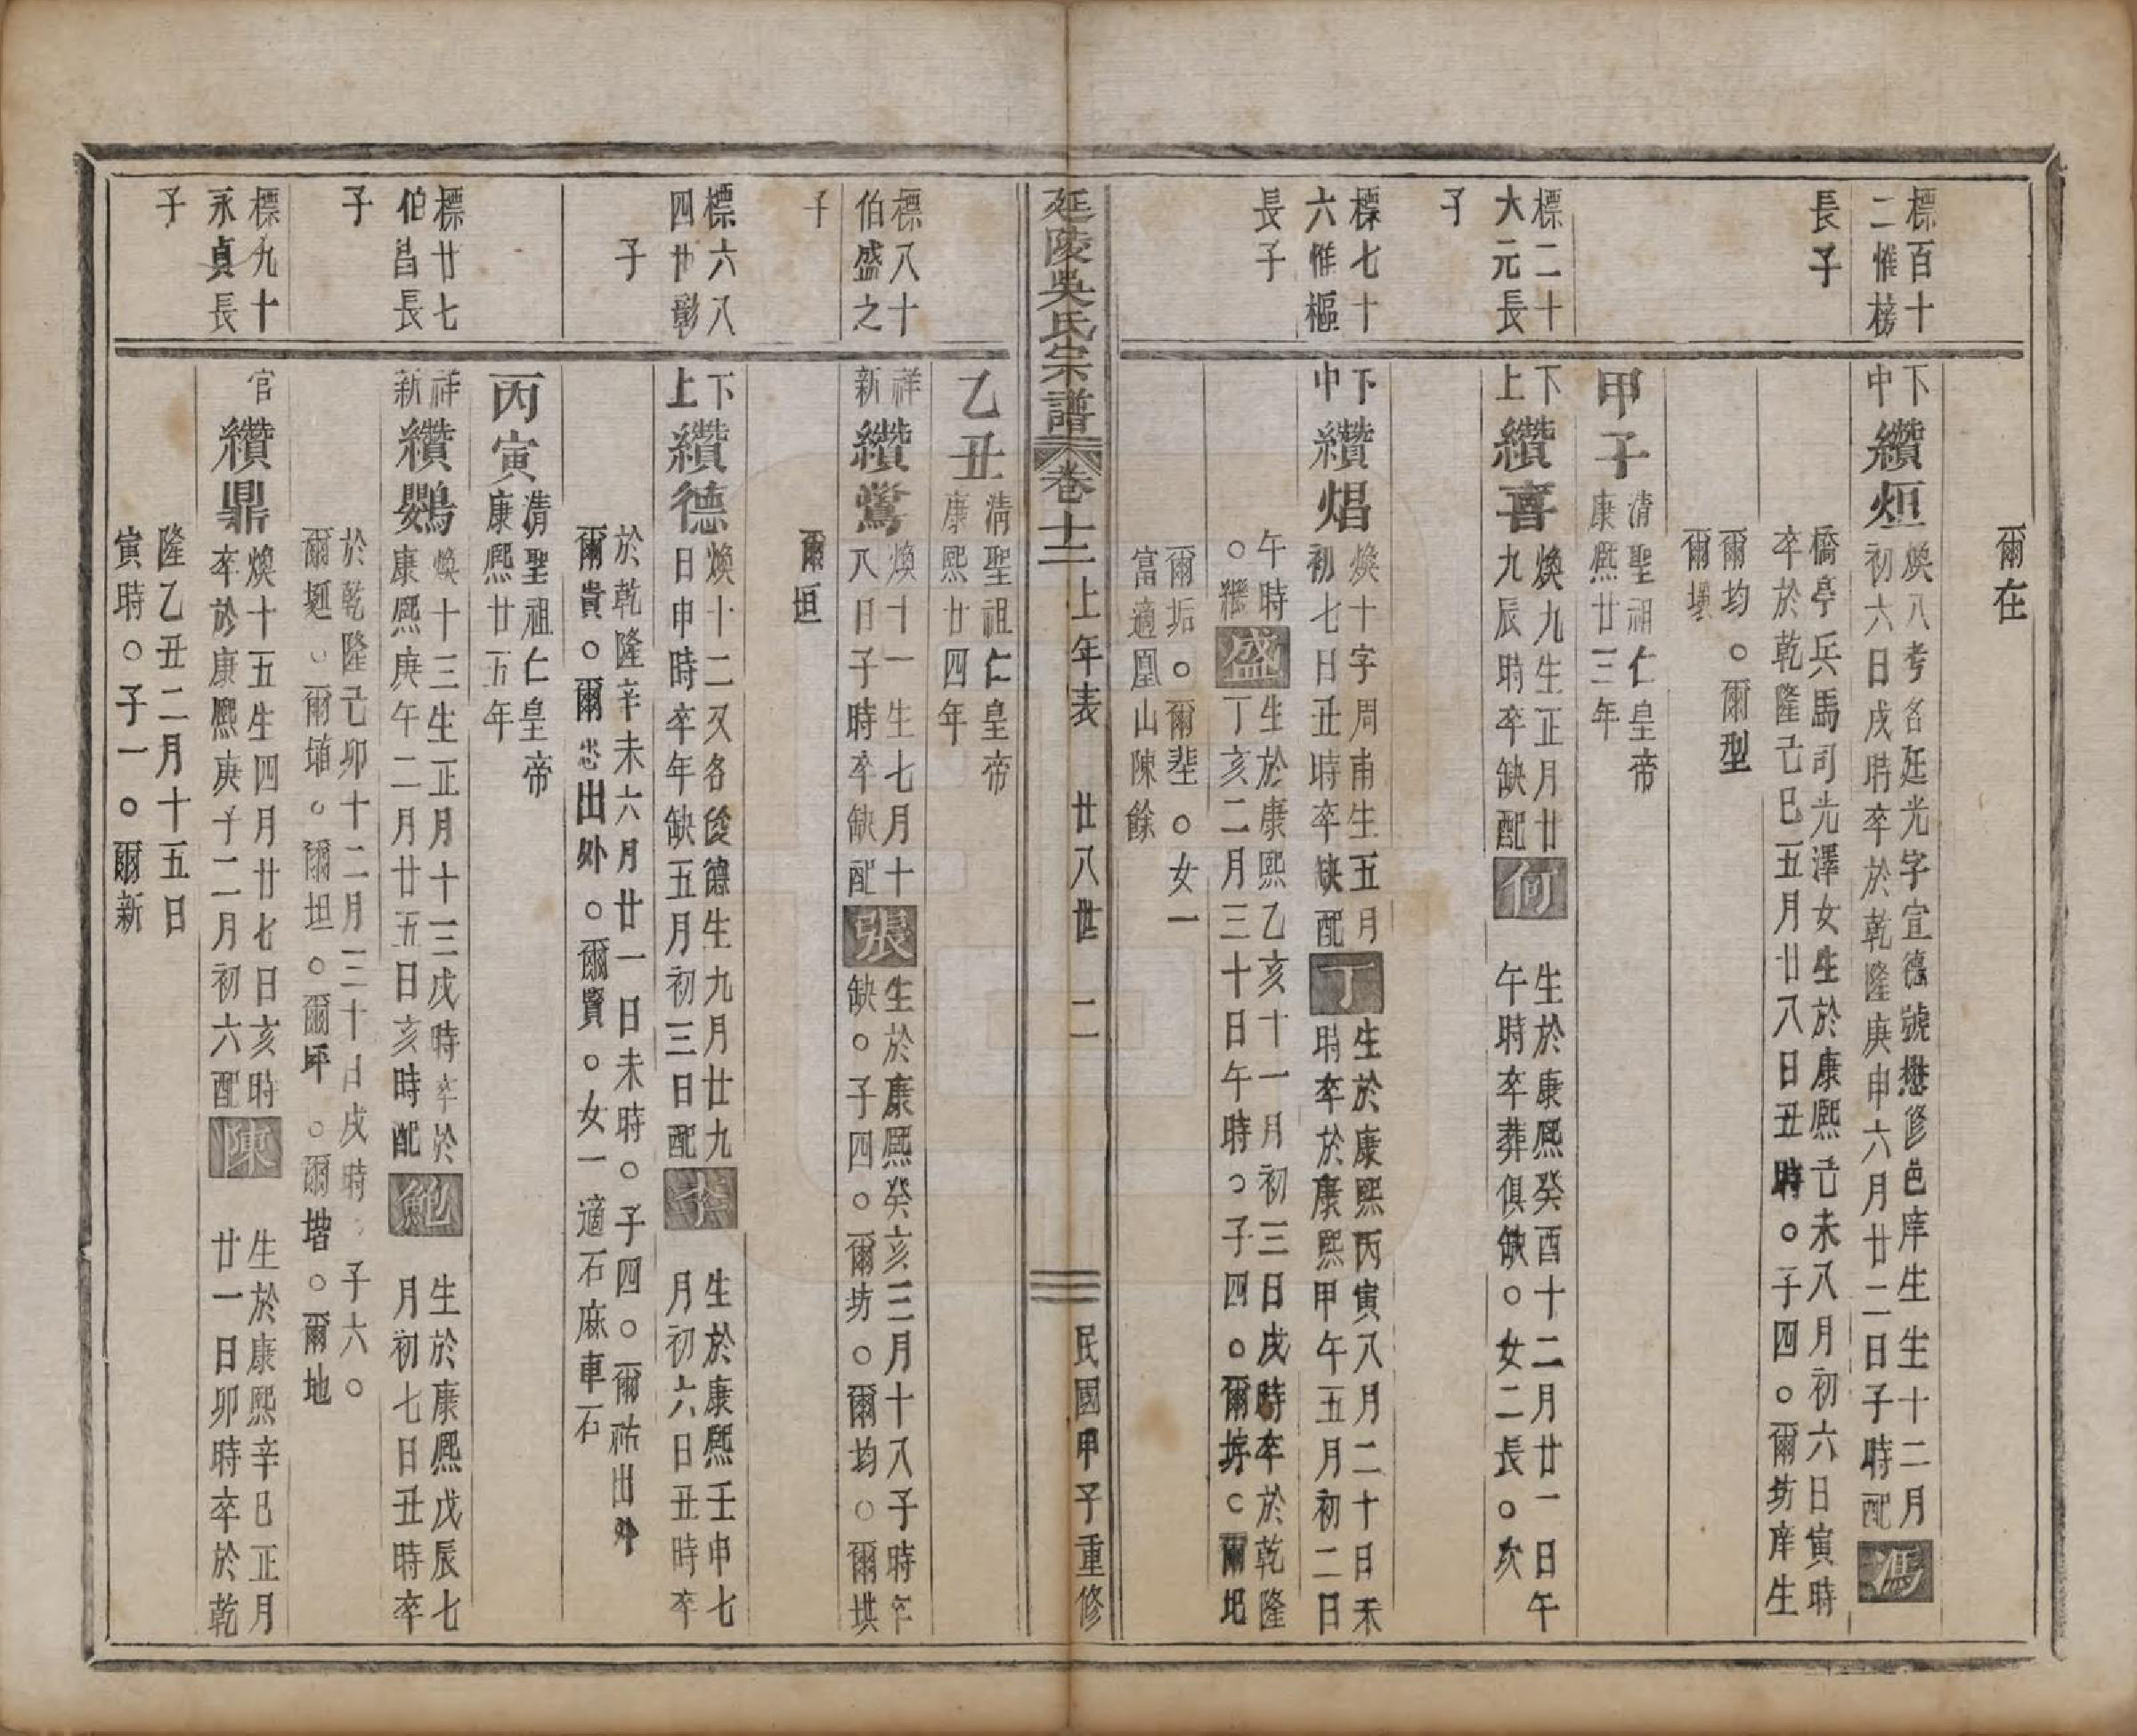 爾在
標百十
二惟榜
長子
下
中
纘烜
煥八考名廷光字宜德號懋修邑庠生生十二月
初六日戌時卒於乾隆庚申六月廿二日子時配
馮
橋亭兵馬司光澤女生於康熙己未八月初六日寅時
卒於乾隆己巳五月廿八日丑時○子四○爾坊庠生
爾均○爾型
爾壎
甲子
清聖祖仁皇帝
康熙廿三年
標二十
大元長
子
下
上
纘喜
煥九生正月廿
九辰時卒缺配
何
生於康熙癸酉十二月廿一日午
午時卒葬俱缺○女二長○次
標七十
六惟樞
長子
下
中
纘焻
煥十字周甫生五月
初七日丑時卒缺配
丁
生於康熙丙寅八月二十日未
時卒於康熙甲午五月初二日
午時
○繼
盛
生於康熙乙亥十一月初三日戌時卒於乾隆
丁亥二月三十日午時○子四○爾㘸○爾圯
爾垢○爾壁○女一
富適凰山陳餘
延陵吳氏宗譜
卷十二上年表 廿八世 二
民國甲子重修
乙丑
清聖祖仁皇帝
康熙廿四年
標八十
伯盛之
子
祥
新
纘鶯
煥十一生七月十
八日子時卒缺配
張
生於康熙癸亥三月十八子時卒
缺○子四○爾坊○爾均○爾垬
爾垣
標六八
四廿彰
子
下
上
纘德
煥十二又名俊德生九月廿九
日申時卒年缺五月初三日配
李
生於康熙壬申七
月初六日丑時卒
於乾隆辛未六月廿一日未時○子四○爾祐出外
爾貴○爾忠出外○爾賢○女一適石麻車石
丙寅
清聖祖仁皇帝
康熙廿五年
標廿七
伯昌長
子
祥
新
纘鸚
煥十三生正月十三戌時卒於
康熙庚午二月廿五日亥時配
鮑
生於康熙戊辰七
月初七日丑時卒
於乾隆己卯十二月三十日戌時○子六○
爾𡋾○爾埇○爾坦○爾坪○爾堦○爾地
標九十
永貞長
子
官
纘鼎
煥十五生四月廿七日亥時
卒於康熙庚子二月初六配
陳
生於康熙辛巳正月
廿一日卯時卒於乾
隆乙丑二月十五日
寅時○子一○爾新